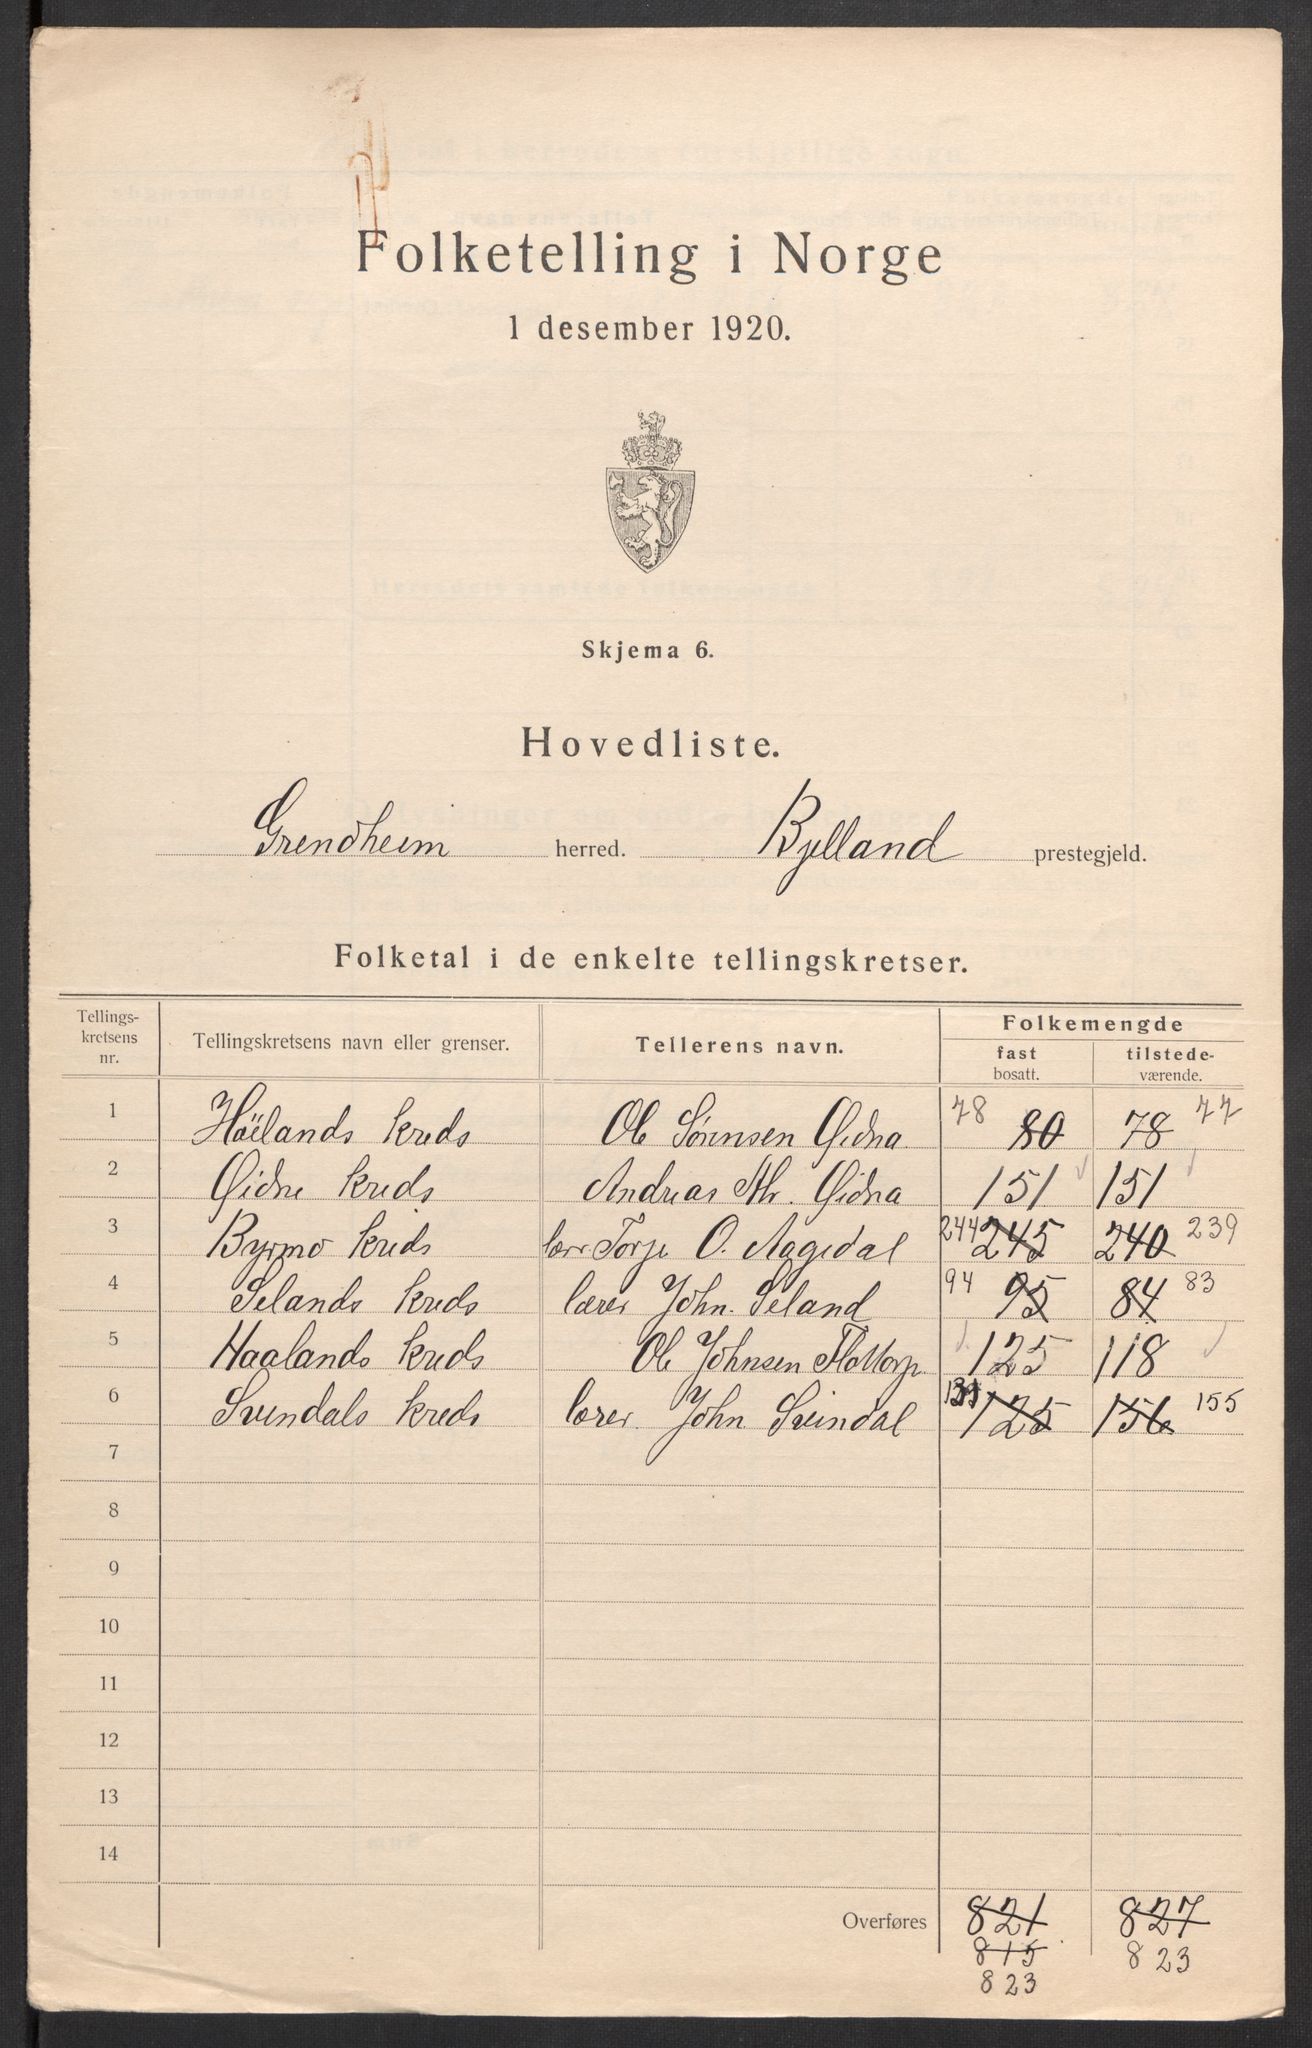 Folketelling i Norge
1 desember 1920.
Skjema 6.
Hovedliste.
Grendheim herred. Bjelland prestegjeld.
Folketal i de enkelte tellingskretser.
Tellings-kretsens nr. Tellingskretsens navn eller grenser. Tellerens navn. Folkemengde
fast bosatt. tilstede-værende.
1 Höilands kreds Ole Sørensen Øidna 78 80 78 77
2 Øidne kreds Andreas Øidna 151 151
3 Byrmo kreds lærer Torje O. Aagedal 244 245 240 239
4 Selands kreds lærer John Seland 94 95 84 83
5 Haalands kreds Ole Johnsen Flottorp 125 118
6 Svendals kreds lærer John Sveindal 125 156 155
7
8
9
10
11
12
13
14
Overføres 821 827
815 823
823